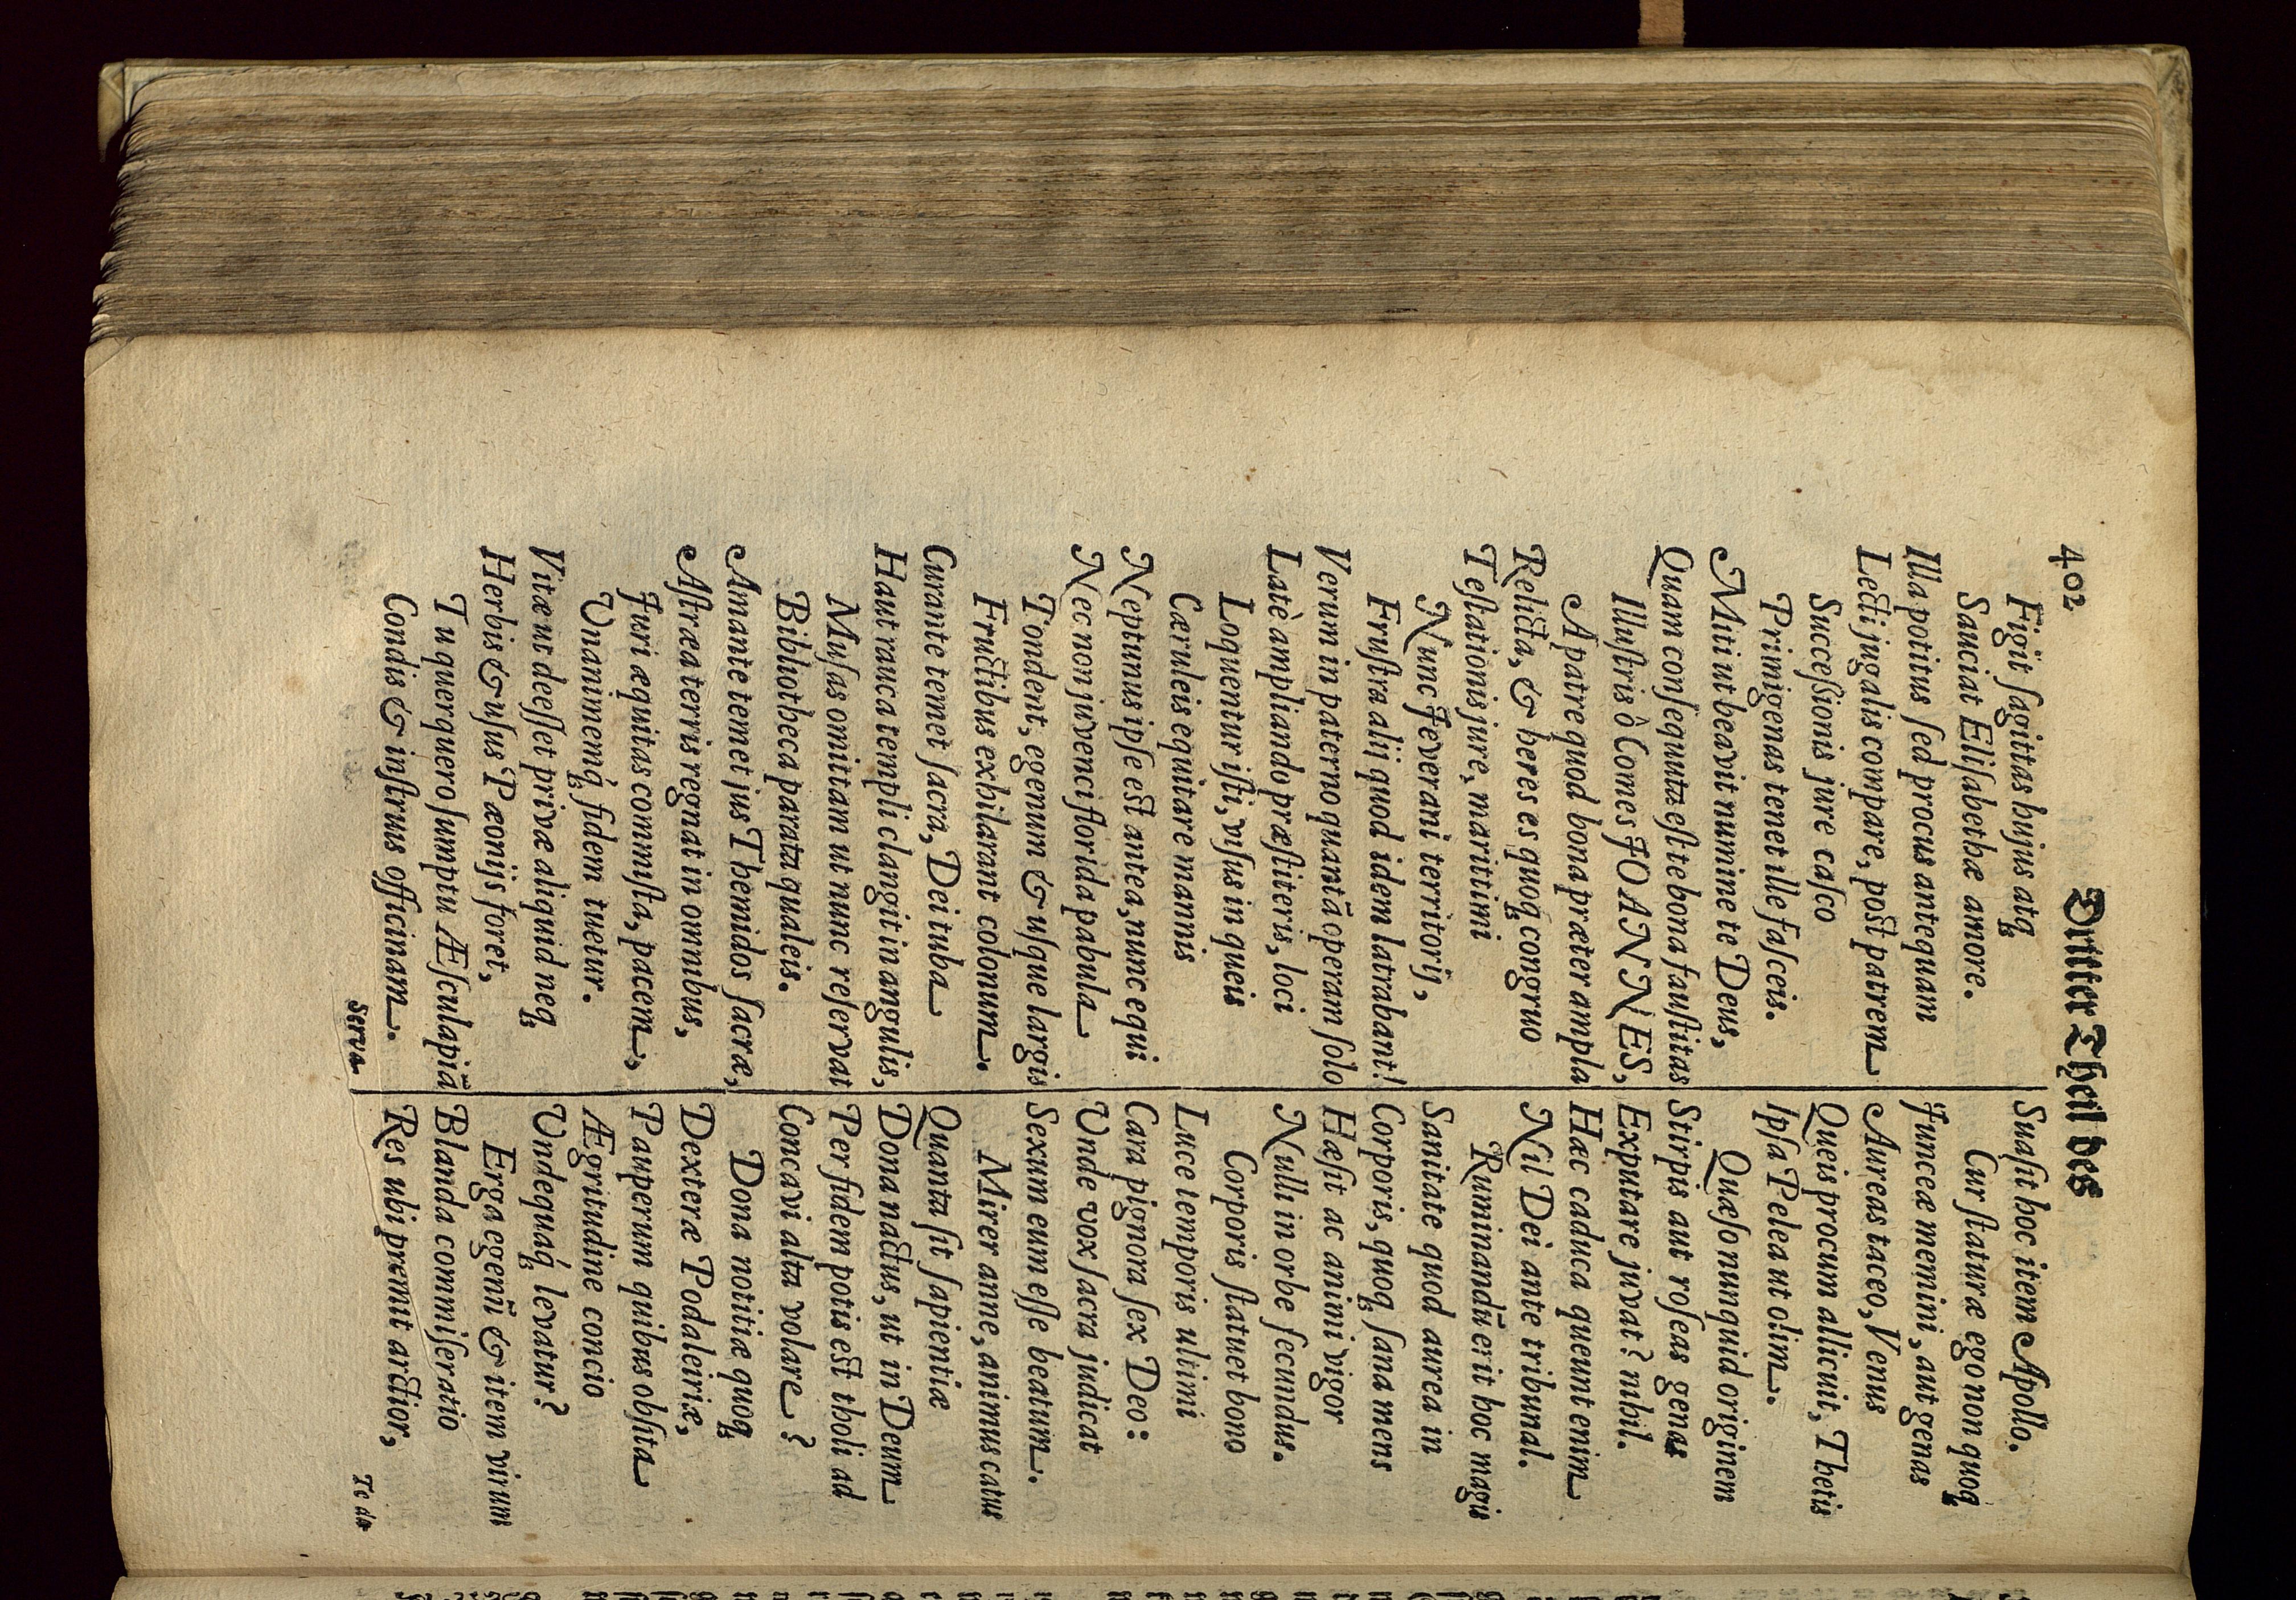 402 Dritter Theil des
Figit sagittas hujus atq́;
Sauciat Elisabethæ amore.
Illa potitus sed procus antequam
Lecti jugalis compare, post patrem
Successionis jure casco
Primigenas tenet ille fasceis.
Miti ut beavit numine te Deus,
Quam consequuta est te bona faustitas
Illustris ô Comes JOANNES,
A patre quod bona præter ampla
Relicta, & heres es quoq; congruo
Testationis jure, marittimi
Nunc Jeverani territorij,
Frustra alij quod idem latrabant!
Verum in paterno quantā operam solo
Latè ampliando præstiteris, loci
Loquentur isti, vsus in queis
Cæruleis equitare mannis
Neptunus ipse est antea, nunc equi
Nec non juvenci florida pabula
Tondent, egenum & usque largis
Fructibus exhilarant colonum.
Curante temet sacra, Dei tuba
Haut rauca templi clangit in angulis,
Musas omittam ut nunc reservat
Bibliotheca parata qualeis.
Amante temet jus Themidos sacræ,
Astræa terris regnat in omnibus,
Juri æquitas commista, pacem,
Unanimenq́; fidem tuetur.
Vitæ ut deesset privæ aliquid neq;
Herbis & usus Pæonijs foret,
Tu querquero sumptu Æsculapiā
Condis & instruis officinam.
Serva
Suasit hoc item Apollo.
Cur staturæ ego non quoq;
Junceæ memini, aut genas
Aureas taceo, Venus
Queis procum allicuit, Thetis
Ipsa Pelea ut olim.
Quæso nunquid originem
Stirpis aut roseas genas
Exputare juvat? nihil.
Hæc caduca queunt enim
Nil Dei ante tribunal.
Ruminandū erit hoc magis
Sanitate quod aurea in
Corporis, quoq; sana mens
Hæsit ac animi vigor
Nulli in orbe secundus.
Corporis statuet bono
Luce temporis ultimi
Cara pignora sex Deo:
Unde vox sacra judicat
Sexum eum esse beatum.
Mirer anne, animus catus
Quanta sit sapientiæ
Dona nactus, ut in Deum
Per fidem potis est tholi ad
Concavi alta volare?
Dona notitiæ quoq;
Dexteræ Podaleiriæ,
Pauperum quibus obsita
Ægritudine concio
Undequaq́; levatur?
Erga egenū & item virum
Blanda commiseratio
Res ubi premit arctior,
Te da